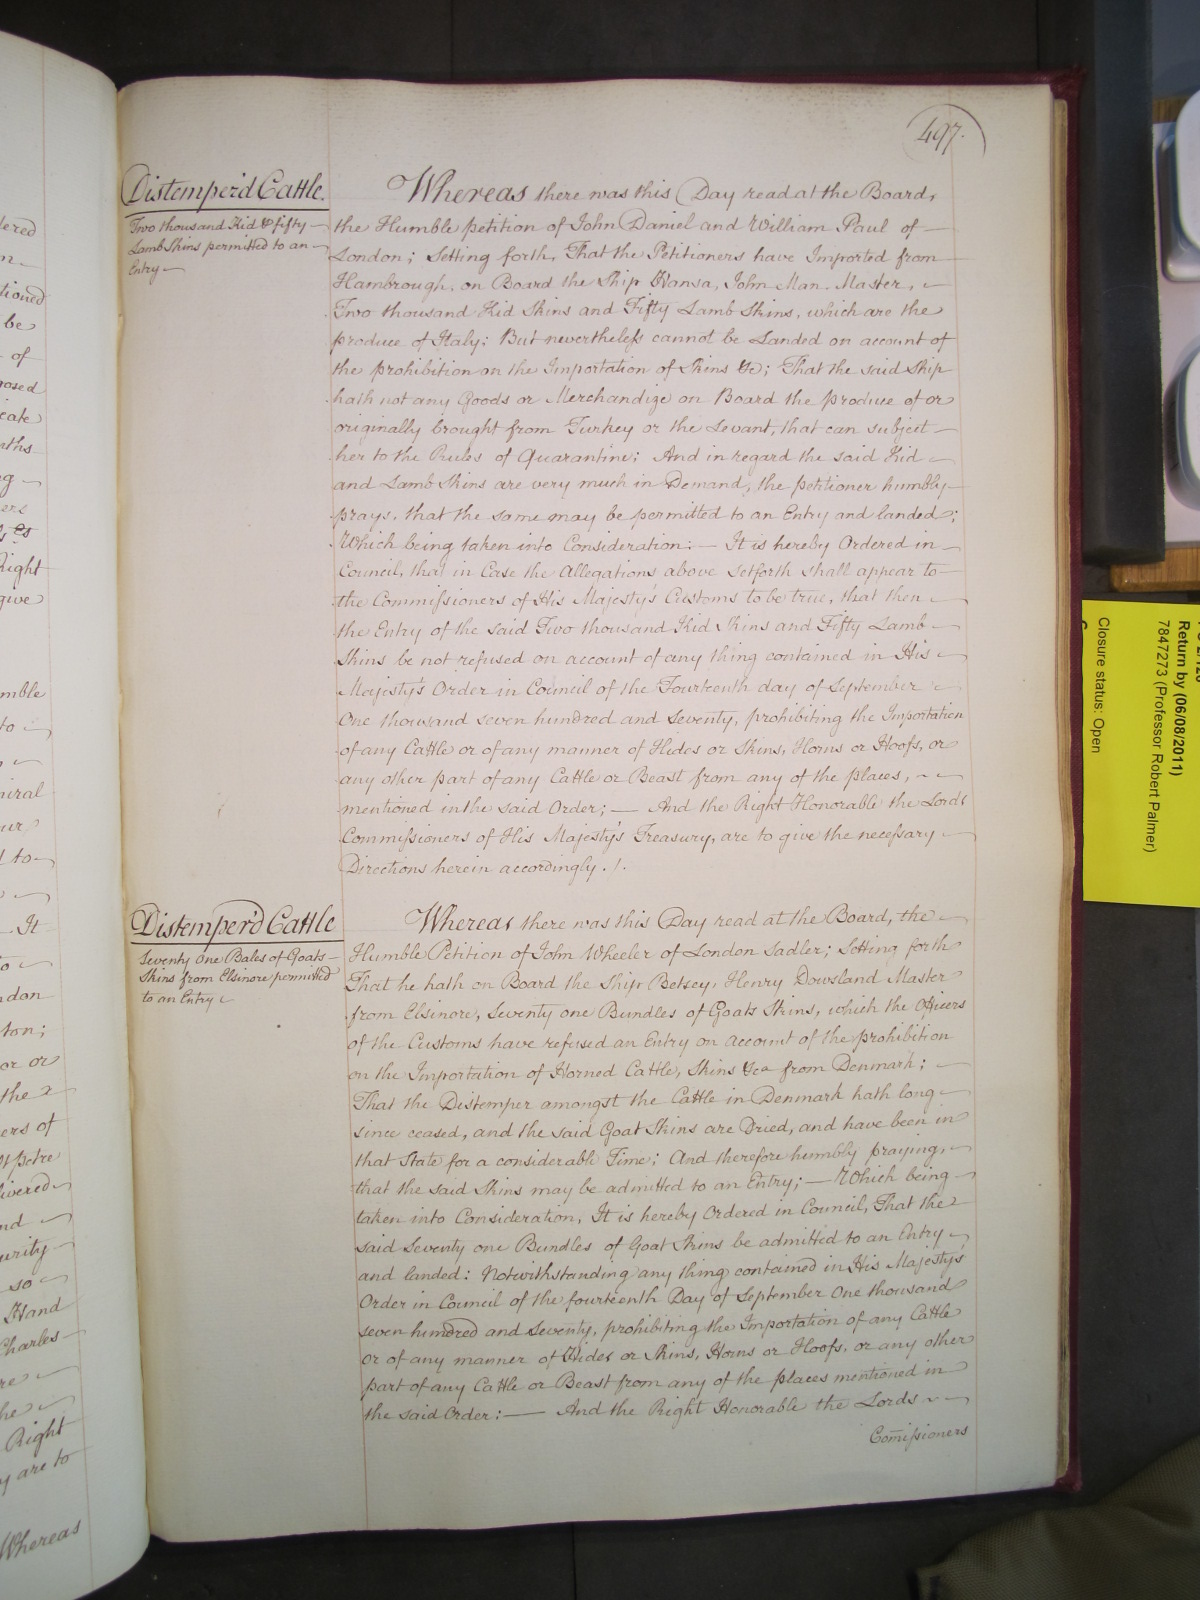 497.
Distemper'd Cattle.
Two thousand Kid & fifty
Lamb Skins permitted to an
Entry
Whereas there was this Day read at the Board,
the Humble petition of John Daniel and William Paul of
London; Setting forth, That the Petitioners have Imported from
Hambrough, on Board the Ship Hansa, John Man. Master,
Two thousand Kid Skins and Fifty Lamb Skins, which are the
produce of Italy: But nevertheless cannot be Landed on account of
the prohibition on the Importation of Skins &c; That the said Ship
hath not any Goods or Merchandize on Board the produce of or
originally brought from Turkey or the Levant, that can subject
her to the Rules of Quarantine; And in regard the said Kid
and Lamb Skins are very much in Demand, the petitioner humbly
prays, that the same may be permitted to an Entry and landed;
Which being taken into Consideration:— It is hereby Ordered in
Council, that in Case the Allegations above setforth shall appear to
the Commissioners of His Majesty's Customs to be true, that then
the Entry of the said Two thousand Kid Skins and Fifty Lamb
Skins be not refused on account of any thing contained in His
Majesty's Order in Council of the Fourteenth day of September
One thousand seven hundred and Seventy, prohibiting the Importation
of any Cattle or of any manner of Hides or Skins, Horns or Hoofs, or
any other part of any Cattle or Beast from any of the places,
mentioned in the said Order;— And the Right Honorable the Lords
Commissioners of His Majesty's Treasury, are to give the necessary
Directions herein accordingly./.
Distemper'd Cattle
Seventy One Bales of Goats
Skins from Elsinore permitted
to an Entry
Whereas there was this Day read at the Board, the
Humble Petition of John Wheeler of London Sadler; Setting forth
That he hath on Board the Ship Betsey, Henry Dowsland Master
from Elsinore, Seventy one Bundles of Goats Skins, which the Officers
of the Customs have refused an Entry on account of the prohibition
on the Importation of Horned Cattle, Skins &ca from Denmark;
That the Distemper amongst the Cattle in Denmark hath long
since ceased, and the said Goat Skins are Dried, and have been in
that State for a considerable Time; And therefore humbly praying,
that the said Skins may be admitted to an Entry;— Which being
taken into Consideration, It is hereby Ordered in Council, That the
said Seventy one Bundles of Goat Skins be admitted to an Entry
and landed: Notwithstanding any thing contained in His Majesty's
Order in Council of the fourteenth Day of September One thousand
seven hundred and Seventy, prohibiting the Importation of any Cattle
or of any manner of Hides or Skins, Horns or Hoofs, or any other
part of any Cattle or Beast from any of the places mentioned in
the said Order:— And the Right Honorable the Lords
Comissioners
Return by (06/08/2011)
7847273 (Professor Robert Palmer)
Closure status: Open
be
of
to
It
the
ers of
so
Hand
Charles
Right
are to
Whereas